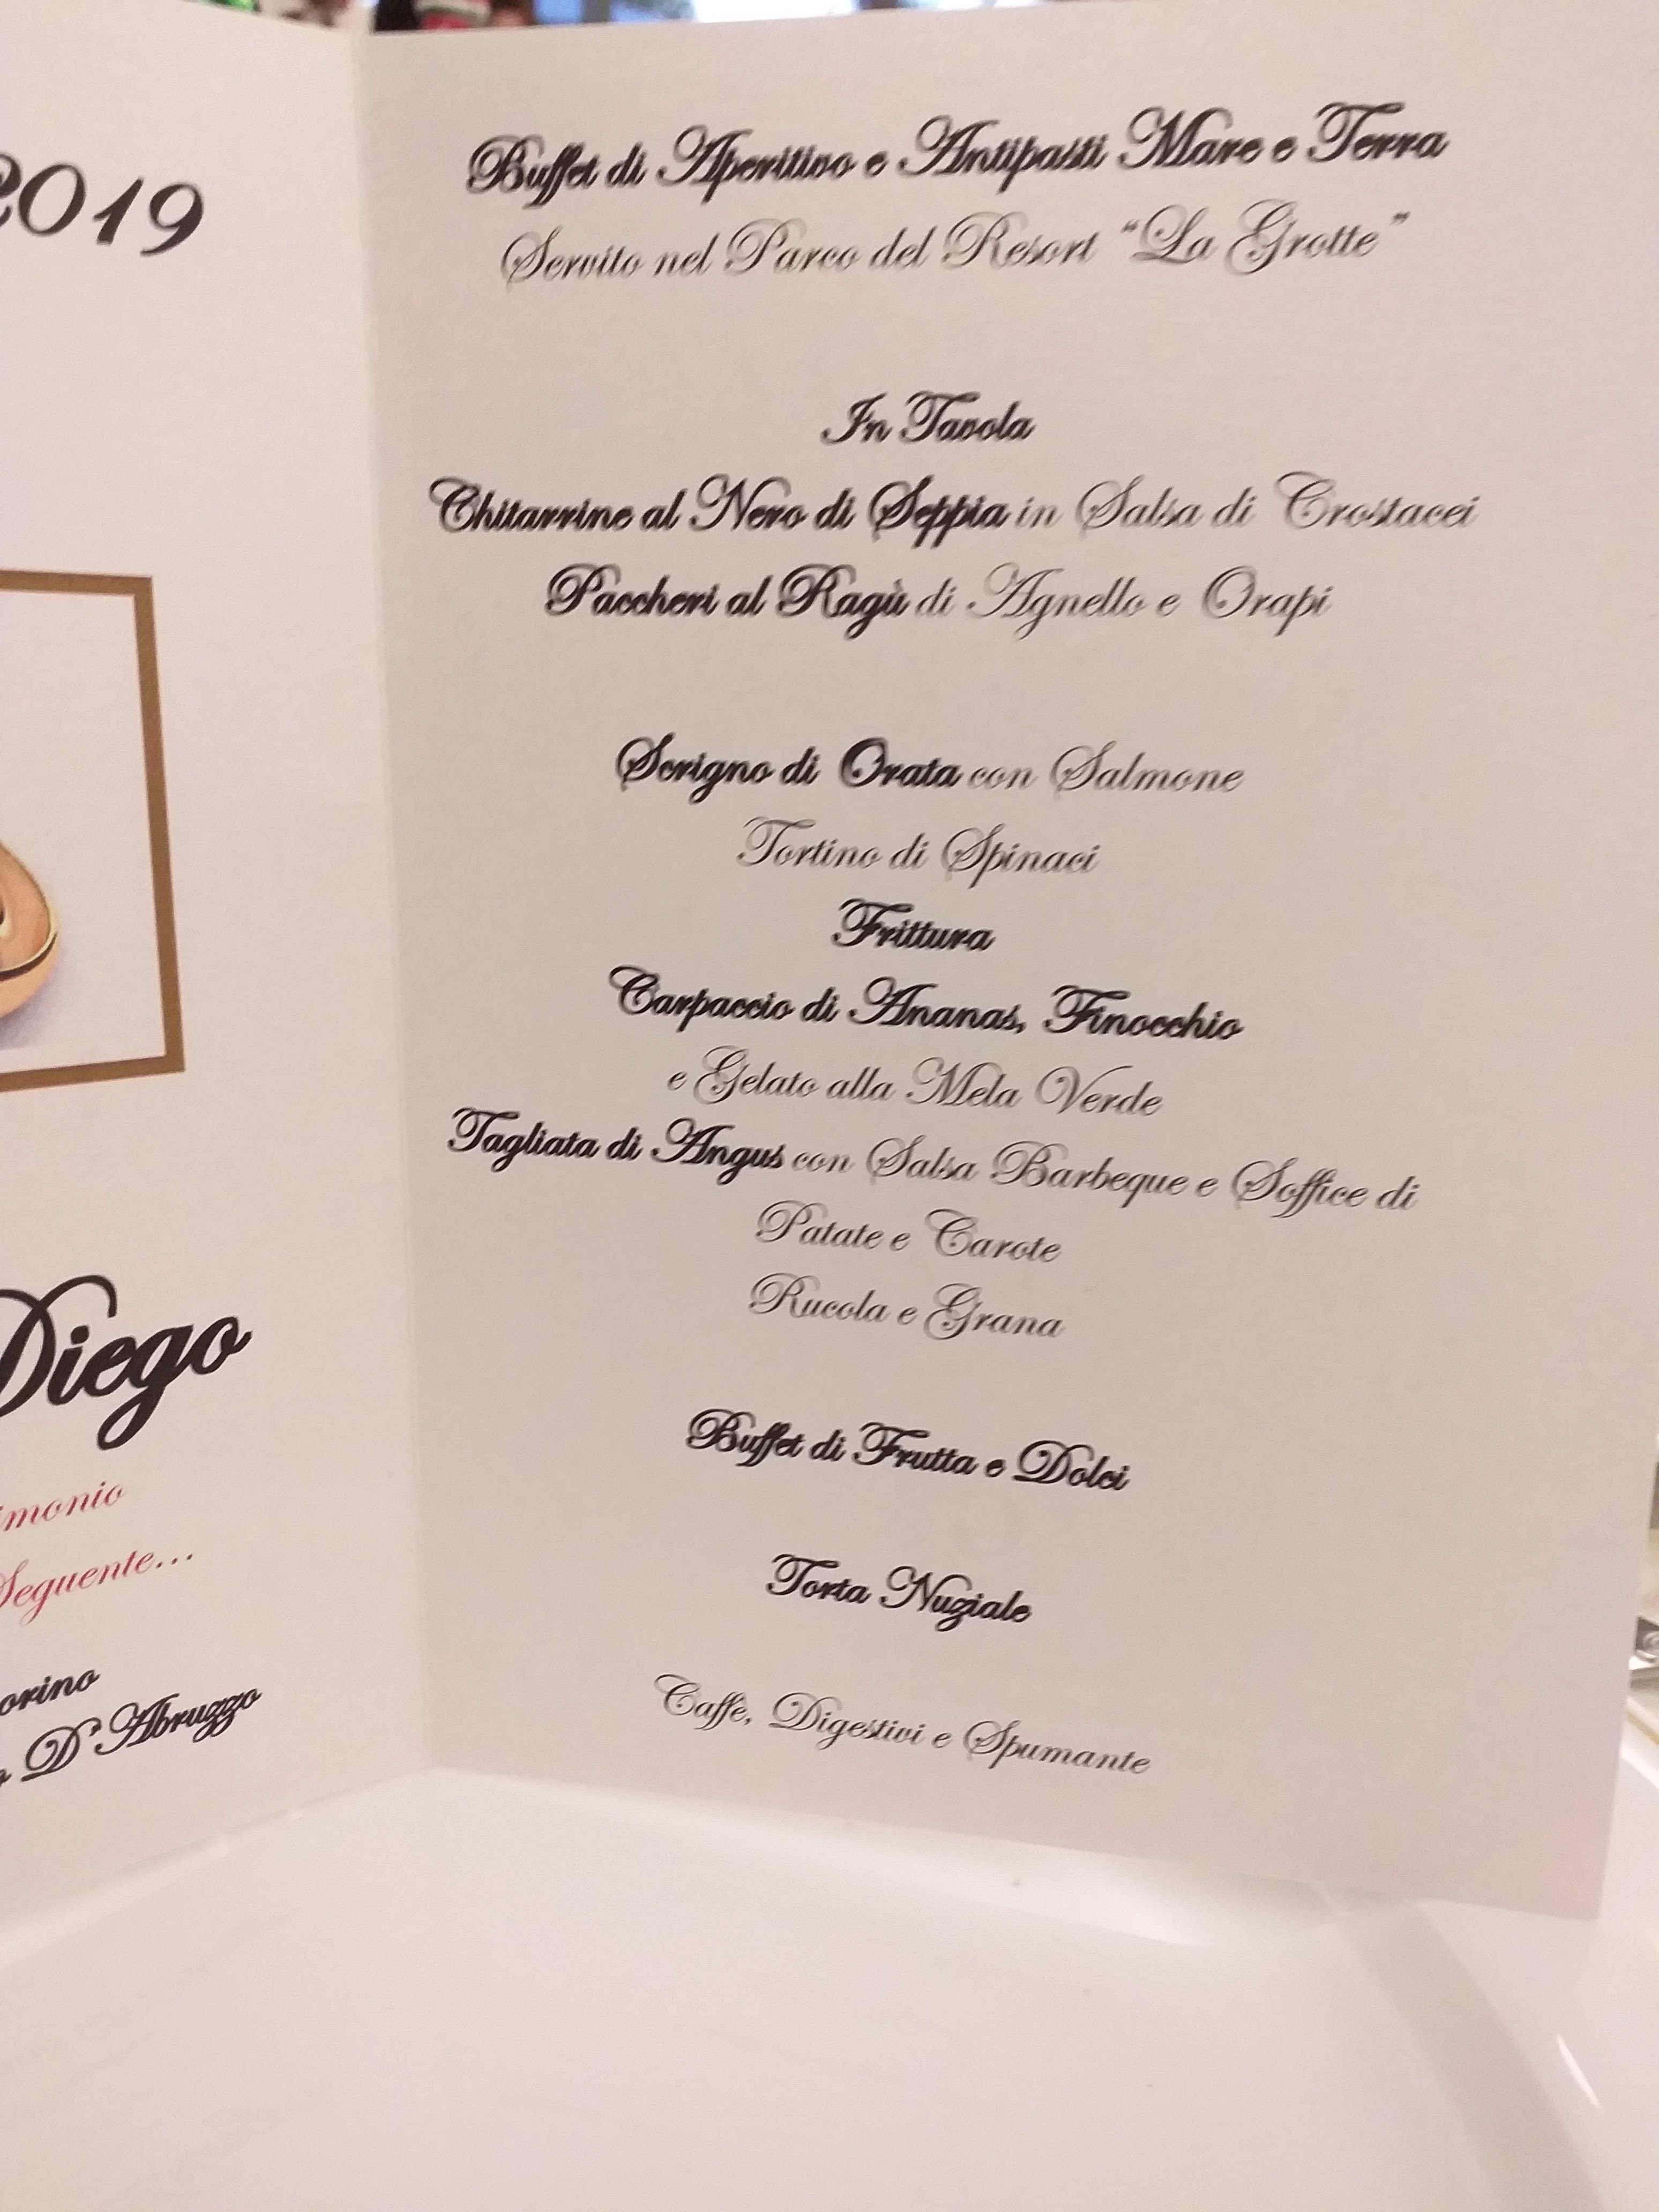 2019
Diego
Seguente...
D'Abruzzo
Buffet di Aperitivo e Antipasti Mare e Terra
Servito nel Parco del Resort "La Grotte"
In Tavola
Chitarrine al Nero di Seppia in Salsa di Crostacei
Paccheri al Ragù di Agnello e Orapi
Scrigno di Orata con Salmone
Tortino di Spinaci
Frittura
Carpaccio di Ananas, Finocchio
e Gelato alla Mela Verde
Tagliata di Angus con Salsa Barbeque e Soffice di
Patate e Carote
Rucola e Grana
Buffet di Frutta e Dolci
Torta Nuziale
Caffè, Digestivi e Spumante